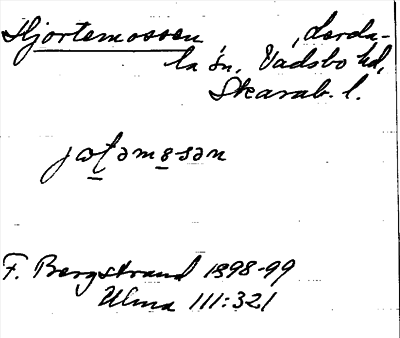 Hjortemossen, Lerda-
la sn, Vadsbo hd,
Skarab. l.
F. Bergstrand 1898-99
Ulma 111:321